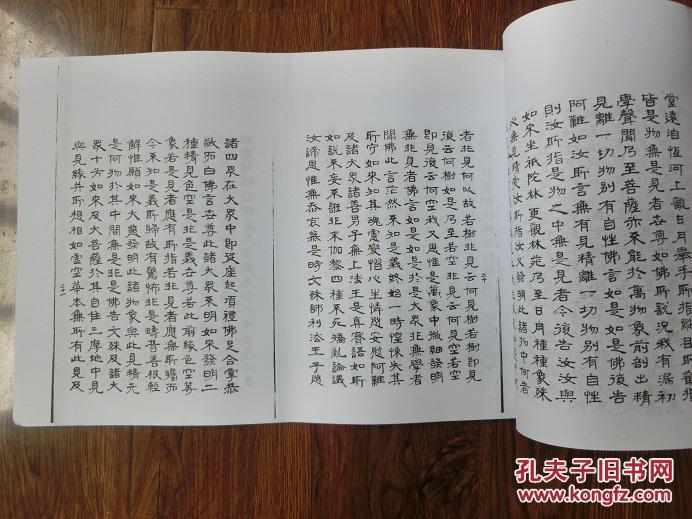 堂遠洎恆河上觀日月舉手所指縱目所觀指
皆是物無是見者世尊如佛所說況我有漏初
學聲聞乃至菩薩亦不能於萬物象前剖出精
見離一切物別有自性佛言如是如是佛復告
阿難如汝所言無有見精離一切物別有自性
則汝所指是物之中無是見者今復告汝汝與
如來坐祇陀林更觀林苑乃至日月種種象殊
必無見精受汝所指汝又發明此諸物中何者
二十
者非見何以故若樹非見云何見樹若樹即見
復云何樹如是乃至若空非見云何見空若空
即見復云何空我又思惟是萬象中微細發明
無非見者佛言如是如是於是大眾非無學者
聞佛此言茫然不知是義終始一時惶悚失其
所守如來知其魂慮變慴心生憐愍安慰阿難
及諸大眾諸善男子無上法王是真實語如所
如說不妄不誑非末伽黎四種不死矯亂論議
汝諦思惟無忝哀慕是時文殊師利法王子愍
諸四眾在大眾中即從座起頂禮佛足合掌恭
敬而白佛言世尊此諸大眾不明如來發明二
種精見色空是非是義世尊若此前緣色空等
象若是見者應有所指若非見者應無所矚而
今不知是義所歸故有驚怖非是疇昔善根輕
鮮惟願如來大慈發明此諸物象與此見精元
是何物於其中間無是非是佛告文殊及諸大
眾十方如來及大菩薩於其自住三摩地中見
與見緣并所想相如虛空華本無所有此見及
孔夫子旧书网
www.kongfz.com